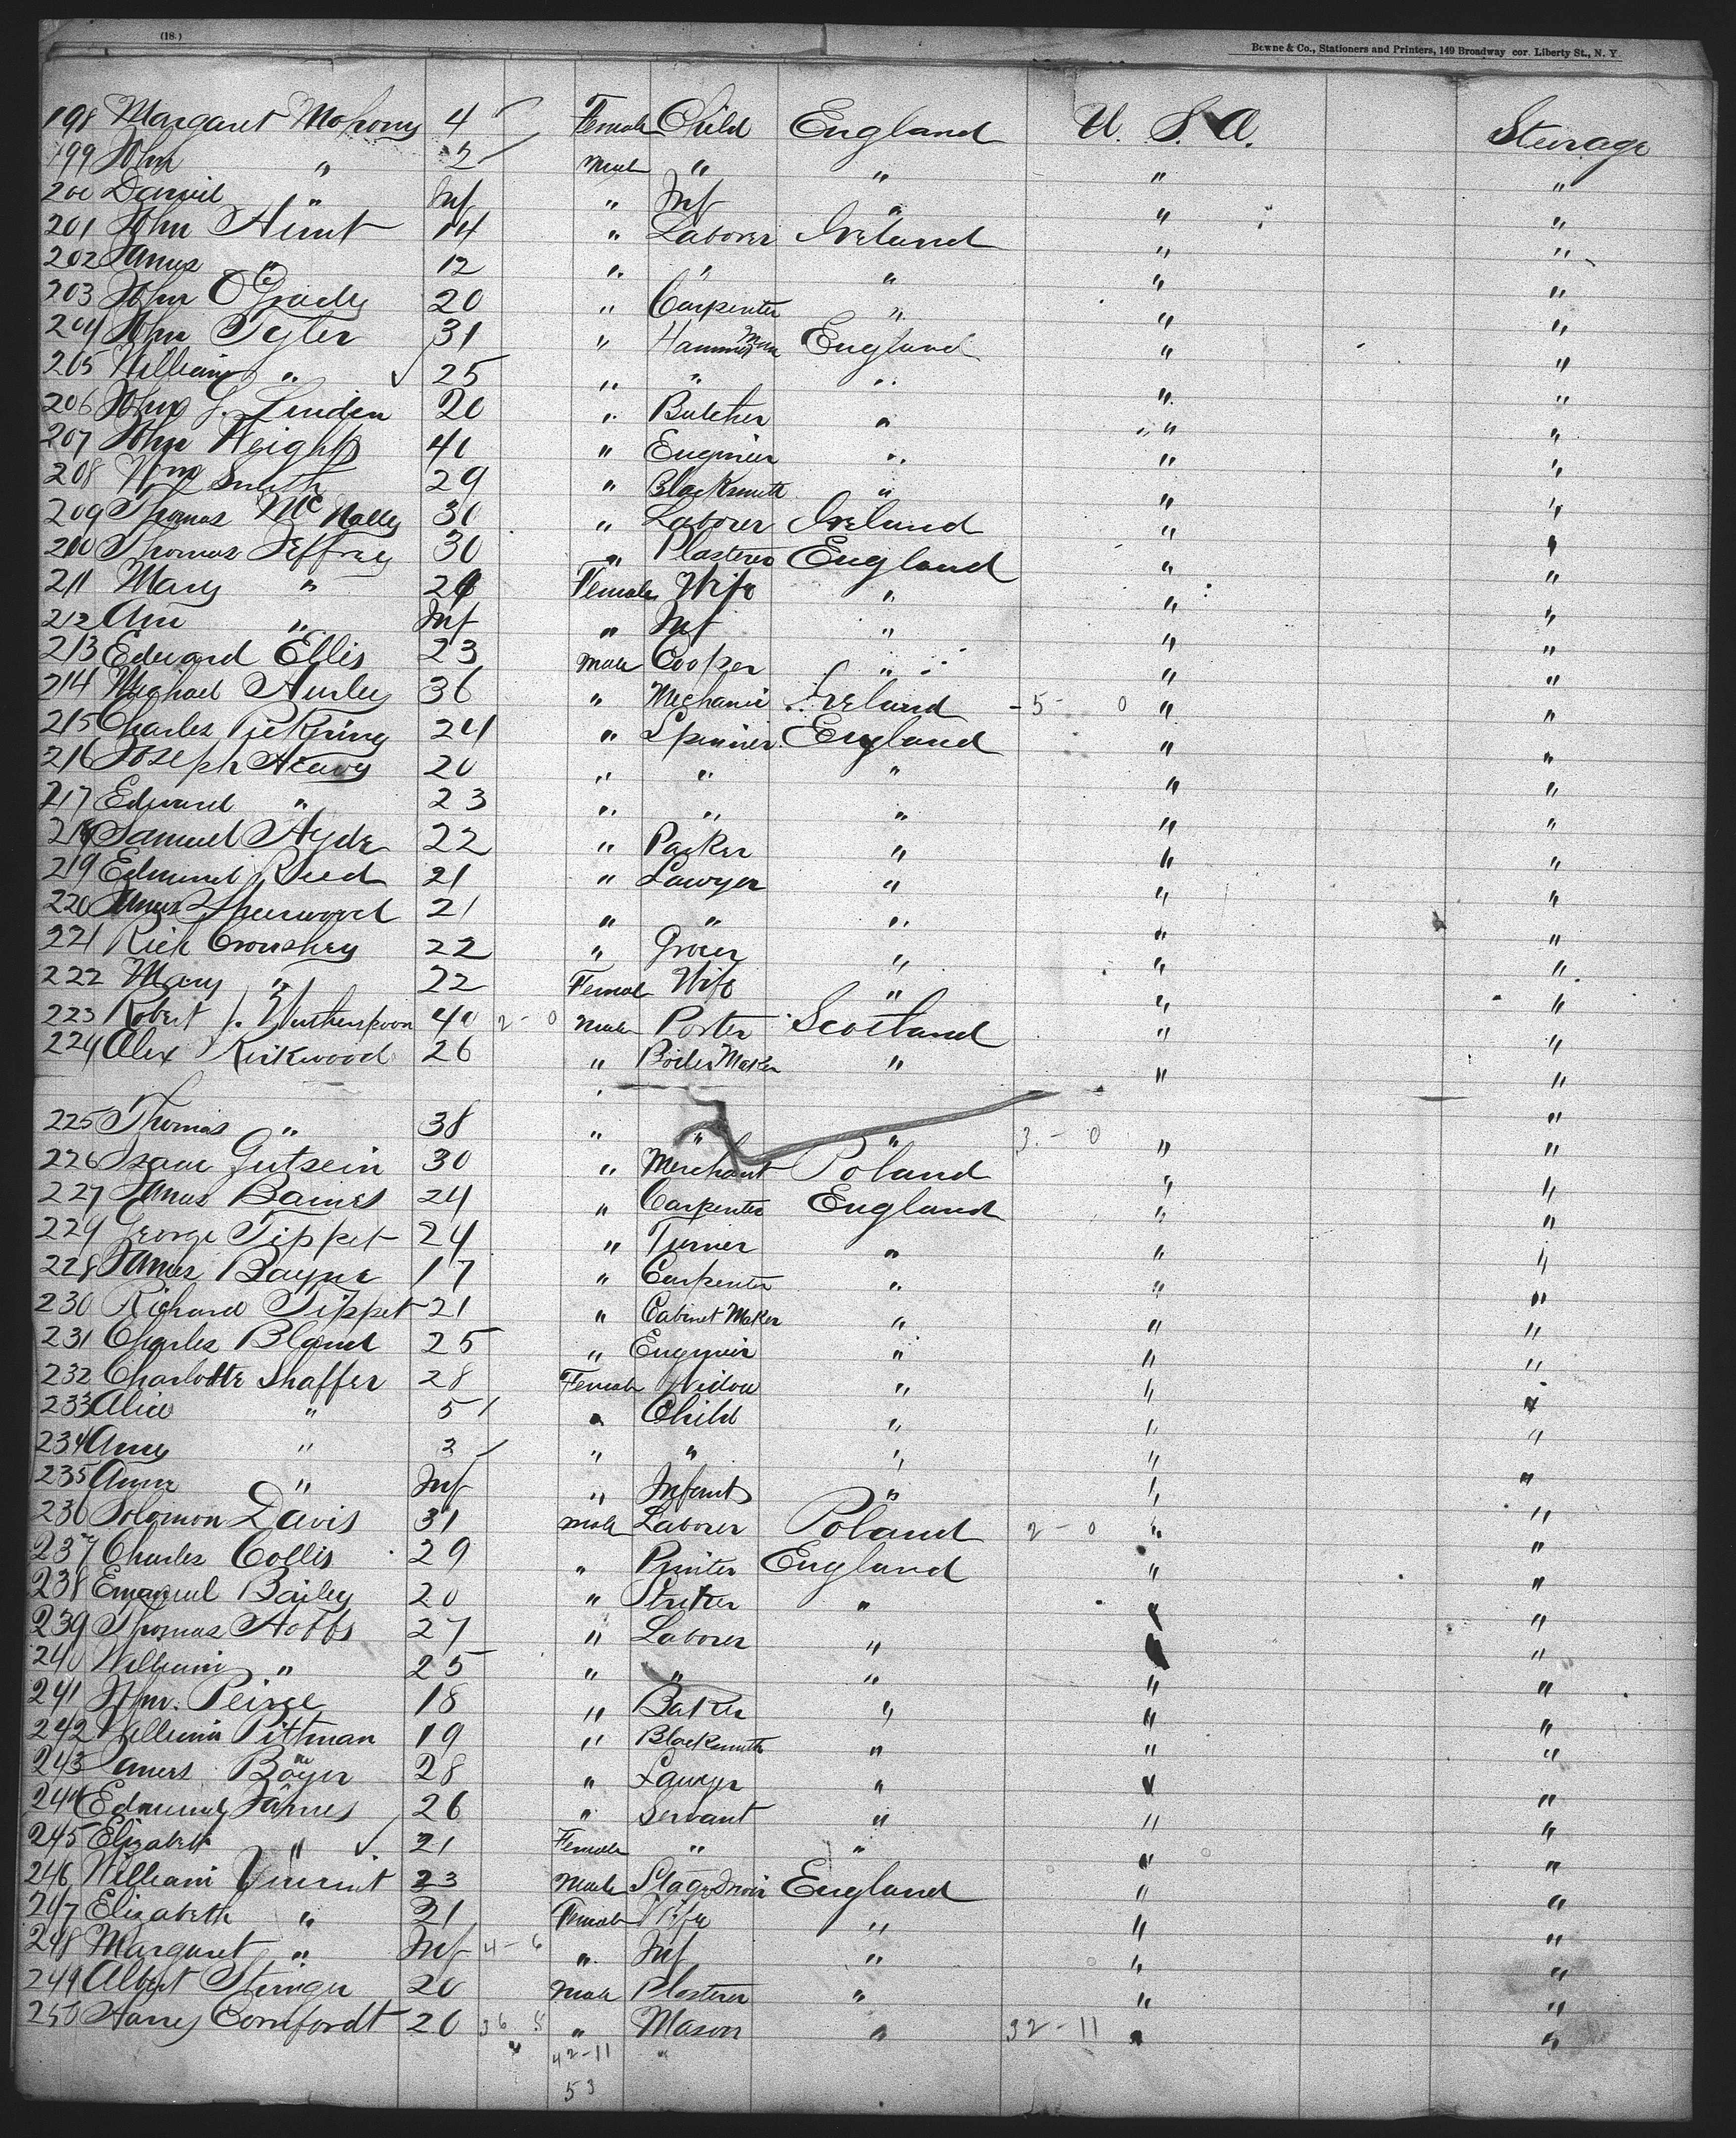 (18.)
Bowne & Co., Stationers and Printers, 149 Broadway cor. Liberty St., N. Y.
198 Margaret Mahony 4 Female Child England U. S. A. Steerage
199 John " 2 Male " " " "
200 Daniel " Inf " Inf " " "
201 John Hunt 14 " Laborer Ireland " "
202 James " 12 " " " " "
203 John O'Grady 20 " Carpenter " " "
204 John Tyler 31 " Hammer Man England " "
205 William " 25 " " " " "
206 John G. Linden 20 " Butcher " " "
207 John Weights 40 " Engineer " " "
208 Wm Smith 29 " Blacksmith " " "
209 Thomas McNally 30 " Laborer Ireland " "
210 Thomas Jeffrey 30 " Plasterer England " "
211 Mary " 26 Female Wife " " "
212 Ann " Inf " Inf " " "
213 Edward Ellis 23 Male Cooper " " "
214 Michael Hurley 36 " Mechanic Ireland - 5 - 0 " "
215 Charles Pickring 24 " Spinner England " "
216 Joseph Heavy 20 " " " " "
217 Edward " 23 " " " " "
218 Samuel Hyde 22 " Packer " " "
219 Edmund Reed 21 " Lawyer " " "
220 James Sherwood 21 " " " " "
221 Rich Crowshey 22 " Grocer " " "
222 Mary " 22 Female Wife " " "
223 Robert J. Wutherspoon 40 2 - 0 Male Porter Scotland " "
224 Alex Kirkwood 26 " Boiler Maker " " "
225 Thomas " 38 " " " 3 - 0 " "
226 Isaac Gutsein 30 " Merchant Poland " "
227 James Baines 24 " Carpenter England " "
229 George Tippet 24 " Turner " " "
228 James Bayne 17 " Carpenter " " "
230 Richard Tippet 21 " Cabinet Maker " " "
231 Charles Bland 25 " Engineer " " "
232 Charlotte Shaffer 28 Female Widow " " "
233 Alice " 5 " Child " " "
234 Amy " 3 " " " " "
235 Anne " Inf " Infant " " "
236 Solomon Davis 31 Male Laborer Poland 2 - 0 " "
237 Charles Collis 29 " Printer England " "
238 Emanuel Bailey 20 " Striker " " "
239 Thomas Hobbs 27 " Laborer " " "
240 William " 25 " " " " "
241 John Peirce 18 " Baker " " "
242 William Pittman 19 " Blacksmith " " "
243 James Boyer 28 " Lawyer " " "
244 Edmund James 26 " Servant " " "
245 Elizabeth " 21 Female " " " "
246 William Vincent 23 Male Stage Driver England " "
247 Elizabeth " 21 Female Wife " " "
248 Margaret " Inf 4 - 6 " Inf " " "
249 Albert Stringer 20 Male Plasterer " " "
250 Harry Cornfordt 20 36 5 " Mason " 32 - 11 " "
42 - 11
53